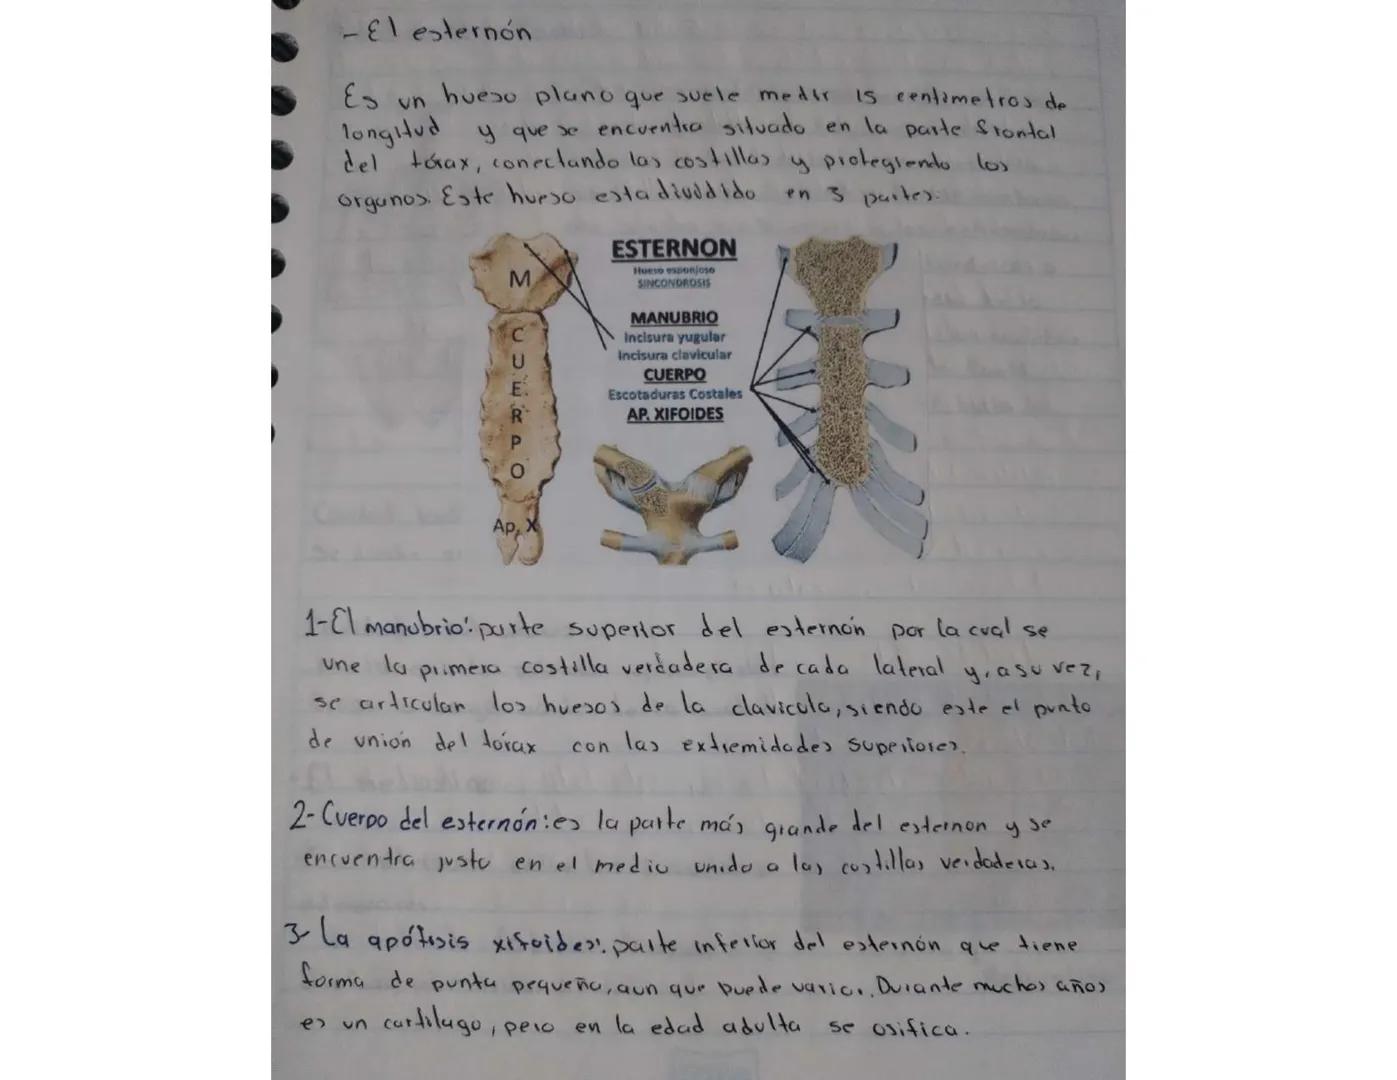 - El esternón
Es un hueso plano que suele medir 15 centimetros de
longitud y que se encuentra situado en la parte frontal
del tórax, conectando las costillas y protegiendo los
organos. Este hueso esta dividido en 3 partes.
ESTERNON
Hueso esponjoso
SINCONDROSIS
MANUBRIO
Incisura yugular
Incisura clavicular
CUERPO
Escotaduras Costales
AP. XIFOIDES
M
C
U
E
R
P
O
Ap. X
1-El manubrio: parte superior del esternón por la cual se
une la primera costilla verdadera de cada lateral y, a su vez,
se articulan los huesos de la clavicula, siendo este el punto
de unión del tórax con las extremidades superiores.
2- Cuerpo del esternón: es la parte más grande del esternon y se
encuentra justo en el medio unido a las costillas verdaderas.
3- La apófisis xifoides: parte inferior del esternón que tiene
forma de punta pequeña, aun que puede variar. Durante muchos años
es un cartilago, pero en la edad adulta se osifica.